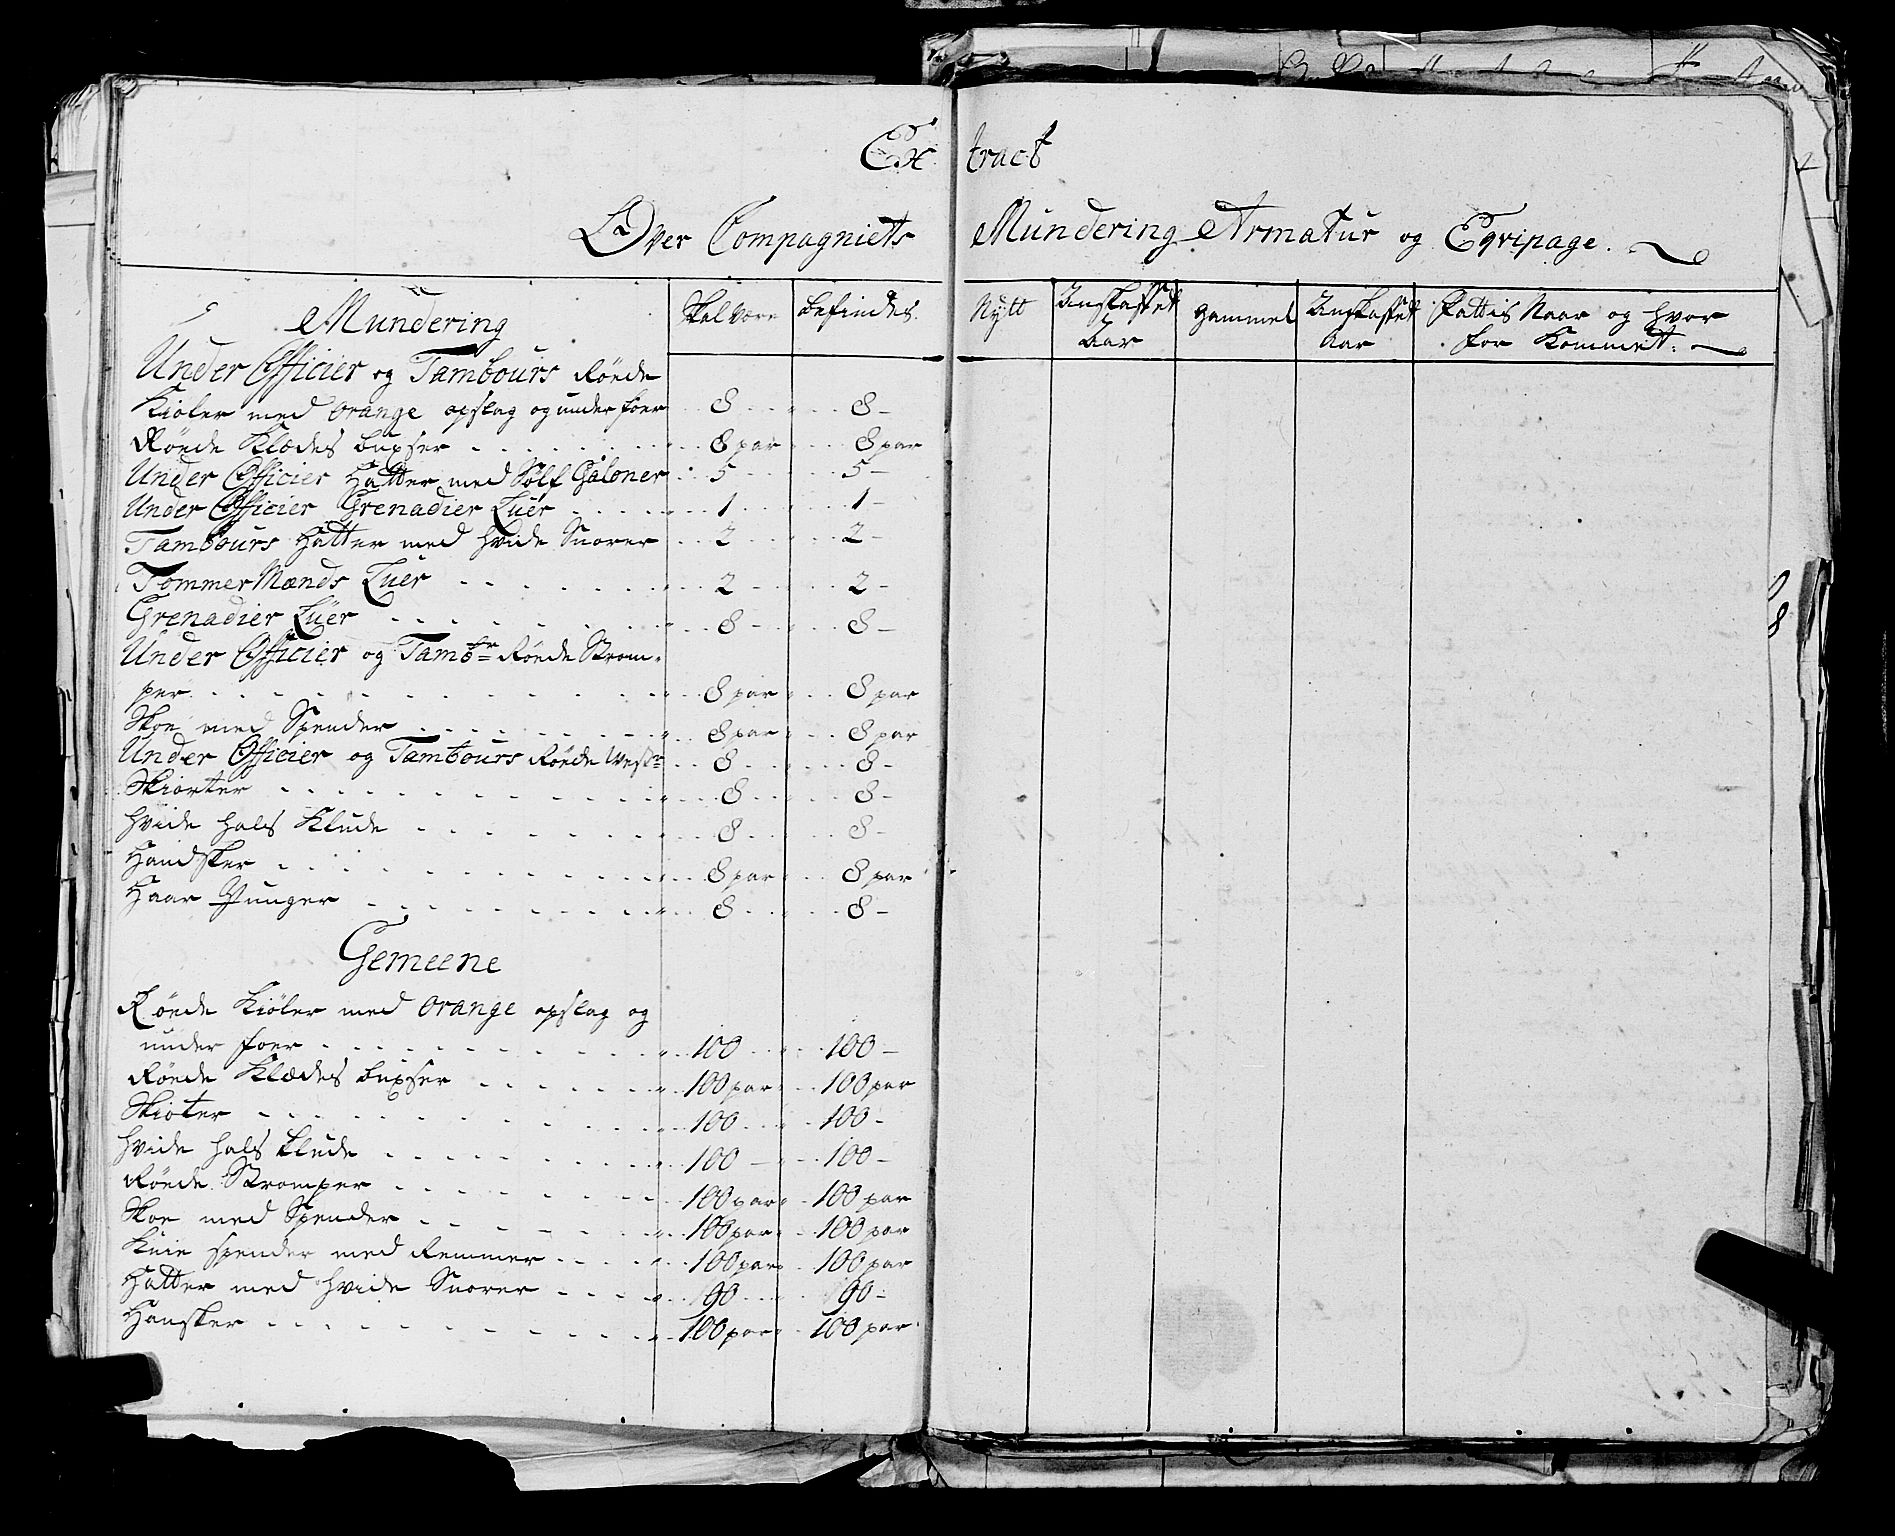 Extract
Over Compagniets Mundering Armatur og Eqvipage.
Mundering
Skal være
befindes.
Nytt
Anskaffet Aar
Gammel
Anskaffet Aar
Fattis Naar og hvor
for Kommet.
Under Officier og Tambours Röede
Kioler med orange opslag og under foer 8 8
Röede Klædes buxser 8 par 8 par
Under Officier Hatter med Sölf Galoner 5 5
Under Officier Grenadier Luer 1 1
Tambours Hatter med hvide Snorer 2 2
Tömmer Mænds Luer 2 2
Grenadier Luer 8 8
Under Officier og Tambr Röede Strom-
per 8 par 8 par
Skoe med Spender 8 par 8 par
Under Officier og Tambours Röede Vestr 8 8
Skiorter 8 8
hvide hals Klude 8 8
Handsker 8 par 8 par
Haar Punger 8 8
Gemeene
Röede Kioler med orange opslag og
under foer 100 100
Röede Klædes buxser 100 par 100 par
Skioter 100 100
hvide hals klude 100 100
Röede Stromper 100 par 100 par
Skoe med Spender 100 par 100 par
Knie spender med Remmer 100 par 100 par
Hatter med hvide Snorer 90 90
Hansker 100 par 100 par